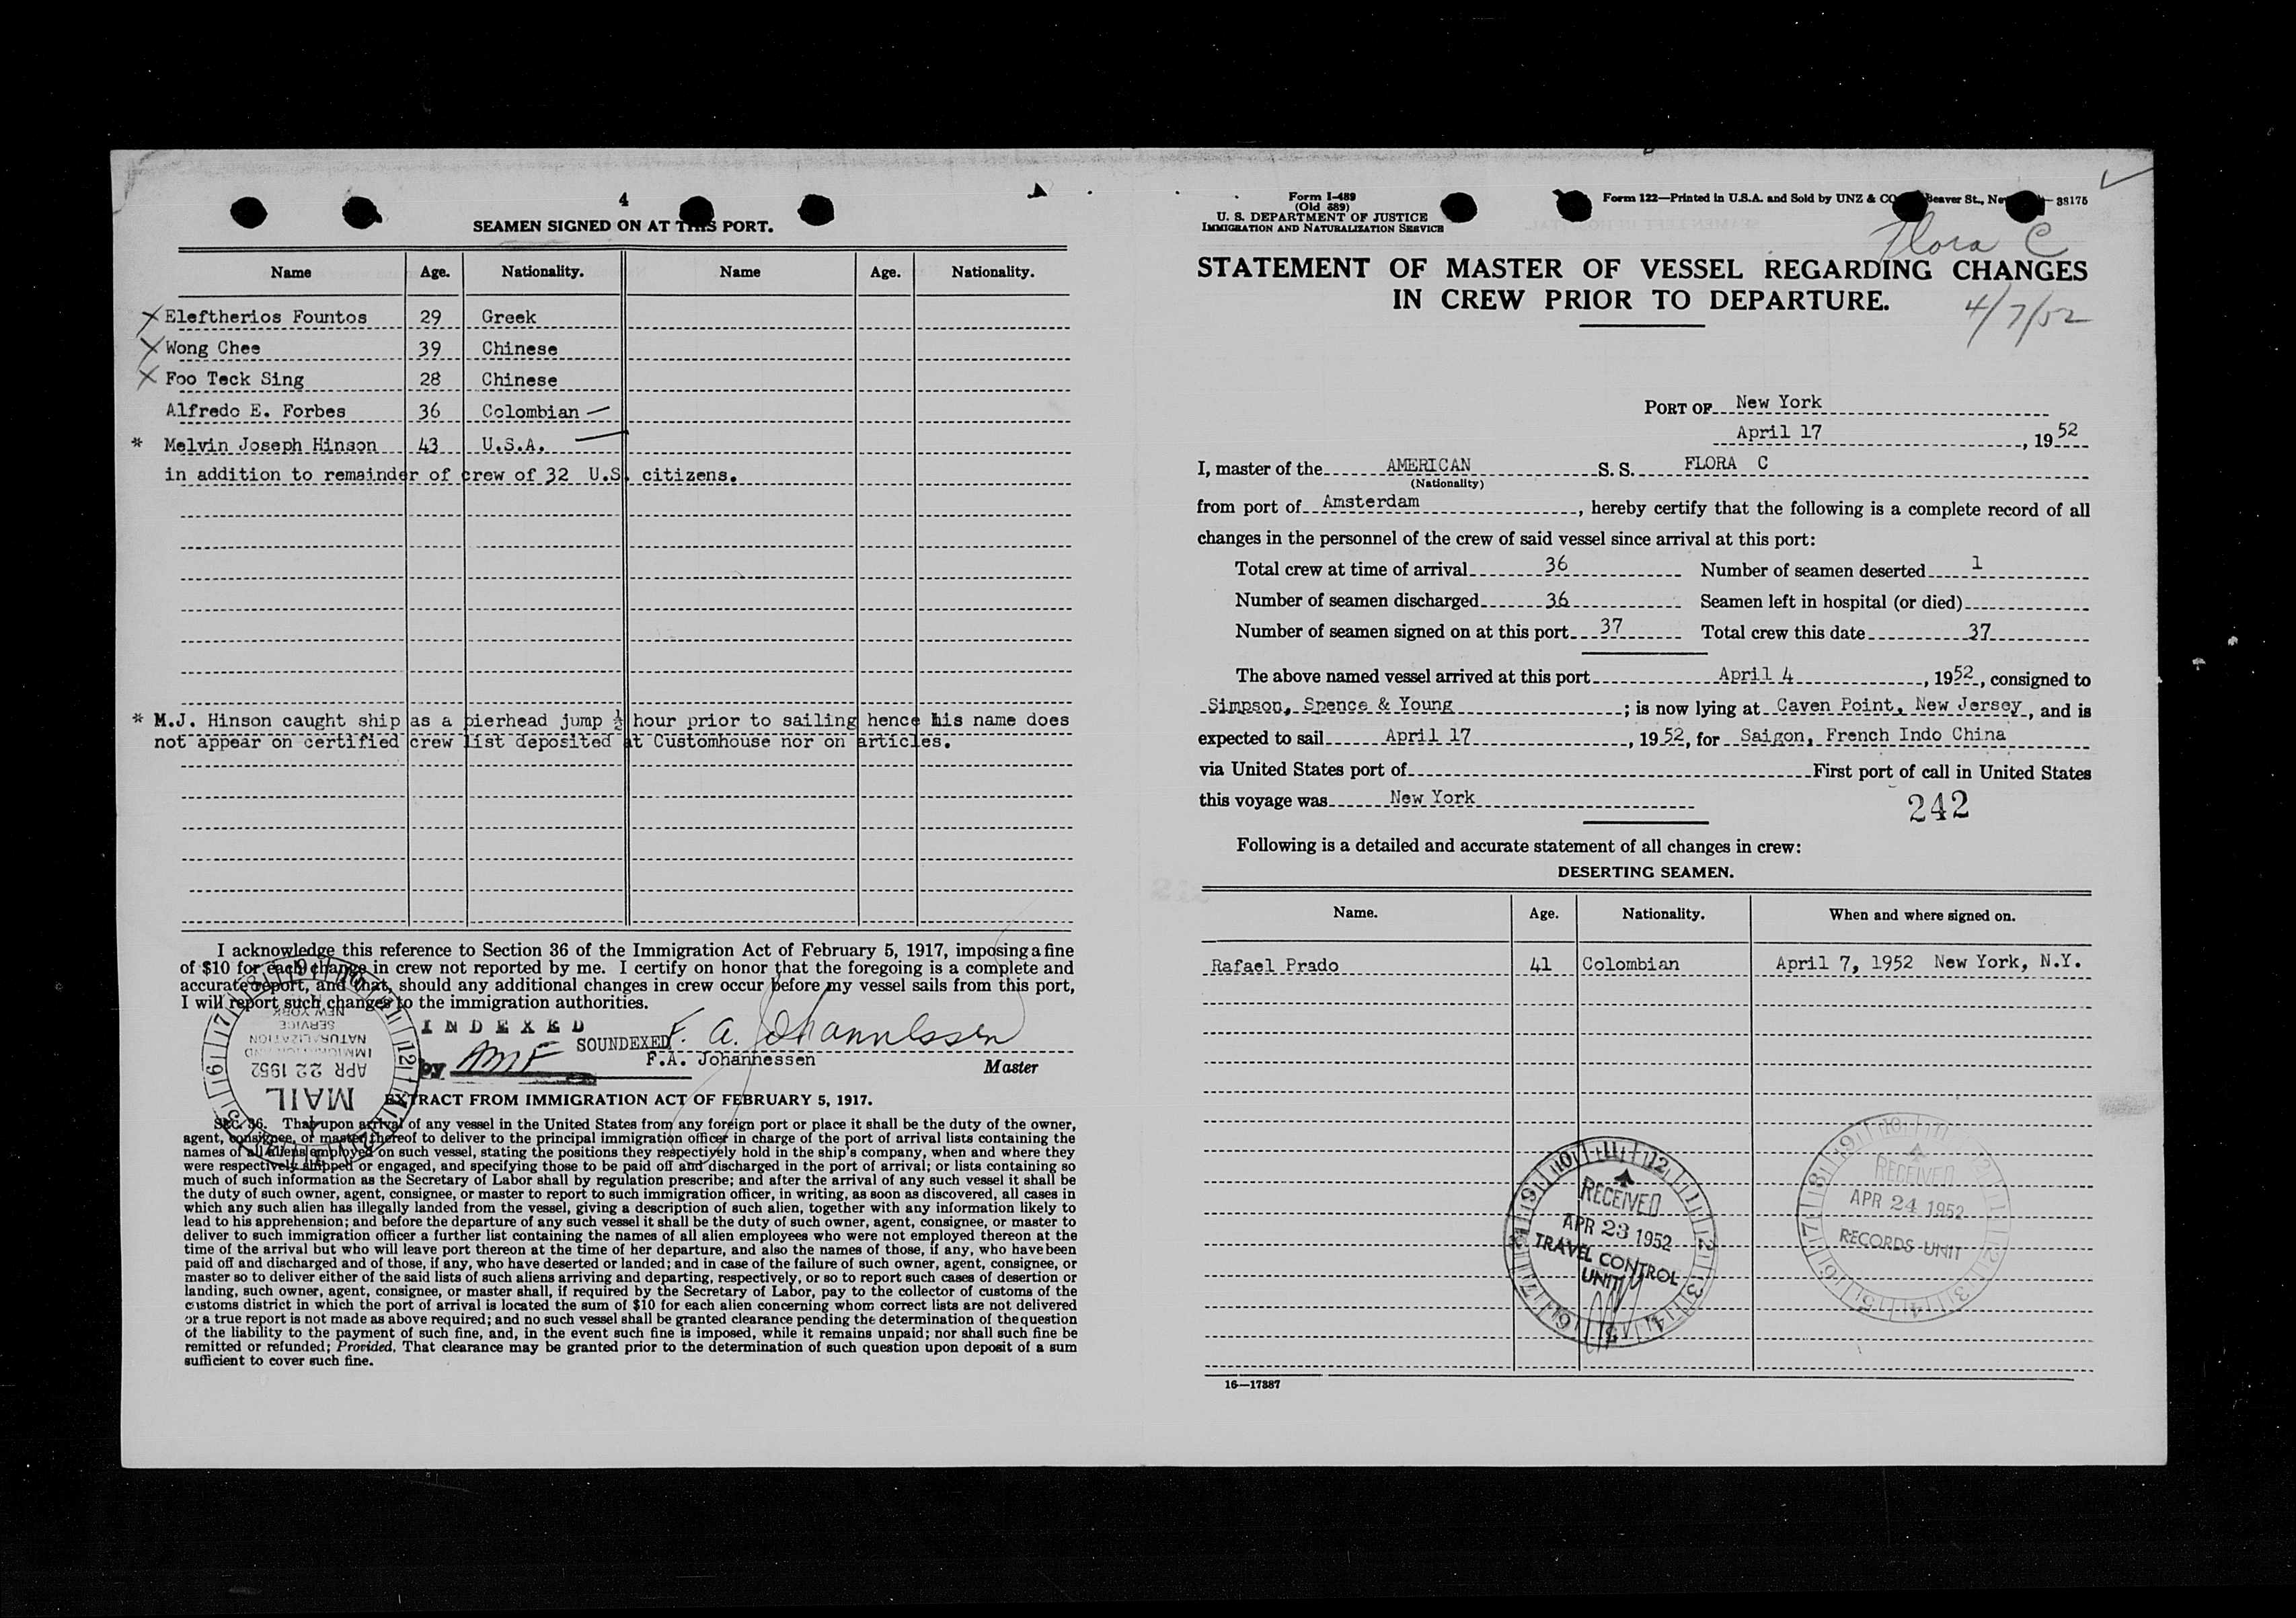 4
SEAMEN SIGNED ON AT THIS PORT.
Name Age. Nationality. Name Age. Nationality.
X Eleftherios Fountos 29 Greek
X Wong Chee 39 Chinese
X Foo Teck Sing 28 Chinese
Alfredo E. Forbes 36 Colombian
* Melvin Joseph Hinson 43 U.S.A.
in addition to remainder of crew of 32 U.S. citizens.
* M.J. Hinson caught ship as a pierhead jump ½ hour prior to sailing hence his name does
not appear on certified crew list deposited at Customhouse nor on articles.
I acknowledge this reference to Section 36 of the Immigration Act of February 5, 1917, imposing a fine
of $10 for each change in crew not reported by me. I certify on honor that the foregoing is a complete and
accurate report, and that, should any additional changes in crew occur before my vessel sails from this port,
I will report such changes to the immigration authorities.
INDEXED
SOUNDEXED
F. A. Johannessen
by AMF
F.A. Johannessen
Master
NEW YORK
SERVICE
NATURALIZATION
IMMIGRATION AND
APR 22 1952
MAIL
EXTRACT FROM IMMIGRATION ACT OF FEBRUARY 5, 1917.
SEC. 36. That upon arrival of any vessel in the United States from any foreign port or place it shall be the duty of the owner,
agent, consignee, or master thereof to deliver to the principal immigration officer in charge of the port of arrival lists containing the
names of all aliens employed on such vessel, stating the positions they respectively hold in the ship's company, when and where they
were respectively shipped or engaged, and specifying those to be paid off and discharged in the port of arrival; or lists containing so
much of such information as the Secretary of Labor shall by regulation prescribe; and after the arrival of any such vessel it shall be
the duty of such owner, agent, consignee, or master to report to such immigration officer, in writing, as soon as discovered, all cases in
which any such alien has illegally landed from the vessel, giving a description of such alien, together with any information likely to
lead to his apprehension; and before the departure of any such vessel it shall be the duty of such owner, agent, consignee, or master to
deliver to such immigration officer a further list containing the names of all alien employees who were not employed thereon at the
time of the arrival but who will leave port thereon at the time of her departure, and also the names of those, if any, who have been
paid off and discharged and of those, if any, who have deserted or landed; and in case of the failure of such owner, agent, consignee, or
master so to deliver either of the said lists of such aliens arriving and departing, respectively, or so to report such cases of desertion or
landing, such owner, agent, consignee, or master shall, if required by the Secretary of Labor, pay to the collector of customs of the
customs district in which the port of arrival is located the sum of $10 for each alien concerning whom correct lists are not delivered
or a true report is not made as above required; and no such vessel shall be granted clearance pending the determination of the question
of the liability to the payment of such fine, and, in the event such fine is imposed, while it remains unpaid; nor shall such fine be
remitted or refunded; Provided, That clearance may be granted prior to the determination of such question upon deposit of a sum
sufficient to cover such fine.
Form I-489
(Old 689)
U. S. DEPARTMENT OF JUSTICE
IMMIGRATION AND NATURALIZATION SERVICE
Form 122—Printed in U.S.A. and Sold by UNZ & CO Beaver St., 38175
Flora C
STATEMENT OF MASTER OF VESSEL REGARDING CHANGES
IN CREW PRIOR TO DEPARTURE.
4/7/52
PORT OF New York
April 17, 1952
I, master of the AMERICAN S. S. FLORA C
(Nationality)
from port of Amsterdam, hereby certify that the following is a complete record of all
changes in the personnel of the crew of said vessel since arrival at this port:
Total crew at time of arrival 36 Number of seamen deserted 1
Number of seamen discharged 36 Seamen left in hospital (or died)
Number of seamen signed on at this port 37 Total crew this date 37
The above named vessel arrived at this port April 4, 1952, consigned to
Simpson, Spence & Young; is now lying at Caven Point, New Jersey, and is
expected to sail April 17, 1952, for Saigon, French Indo China
via United States port of First port of call in United States
this voyage was New York
242
Following is a detailed and accurate statement of all changes in crew:
DESERTING SEAMEN.
Name. Age. Nationality. When and where signed on.
Rafael Prado 41 Colombian April 7, 1952 New York, N.Y.
RECEIVED
APR 23 1952
TRAVEL CONTROL
UNIT
RECEIVED
APR 24 1952
RECORDS UNIT
16—17387